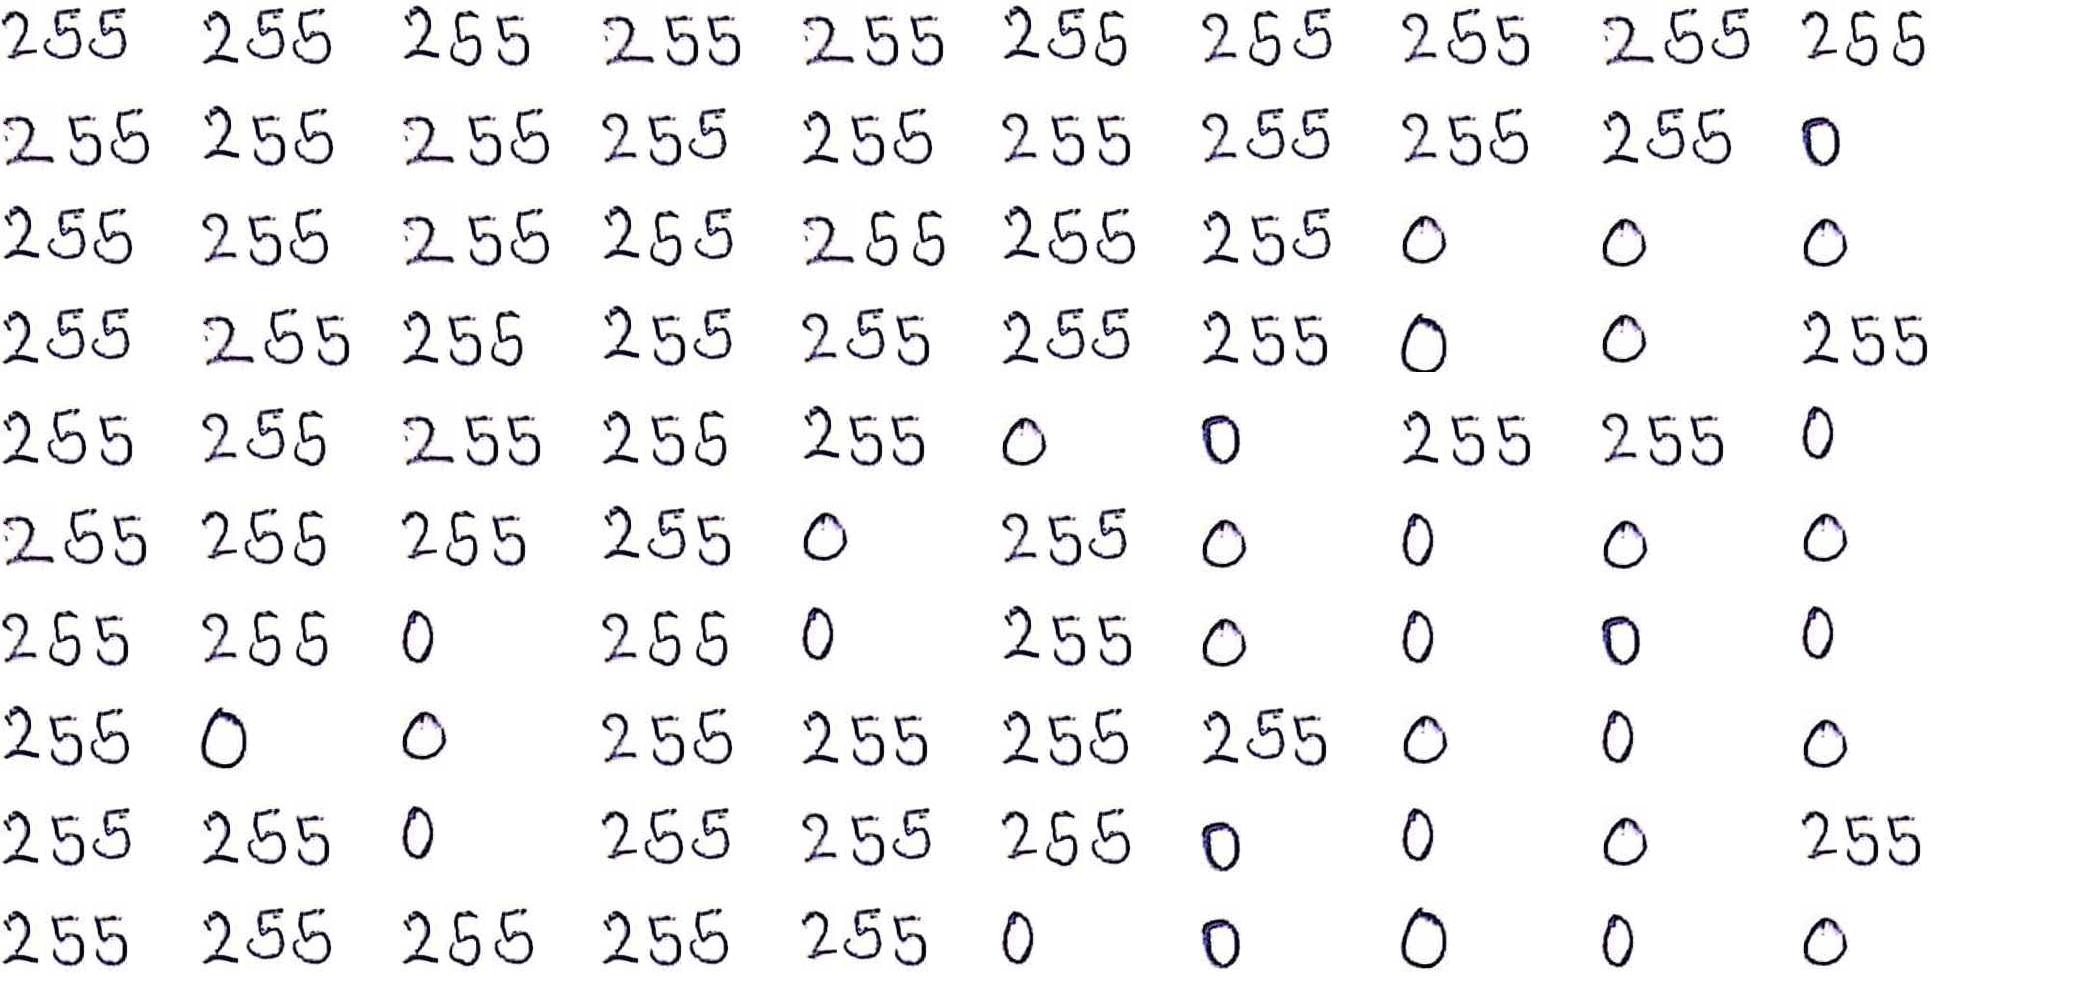 255 255 255 255 255 255 255 255 255 255
255 255 255 255 255 255 255 255 255 0
255 255 255 255 255 255 255 0 0 0
255 255 255 255 255 255 255 0 0 255
255 255 255 255 255 0 0 255 255 0
255 255 255 255 0 255 0 0 0 0
255 255 0 255 0 255 0 0 0 0
255 0 0 255 255 255 255 0 0 0
255 255 0 255 255 255 0 0 0 255
255 255 255 255 255 0 0 0 0 0